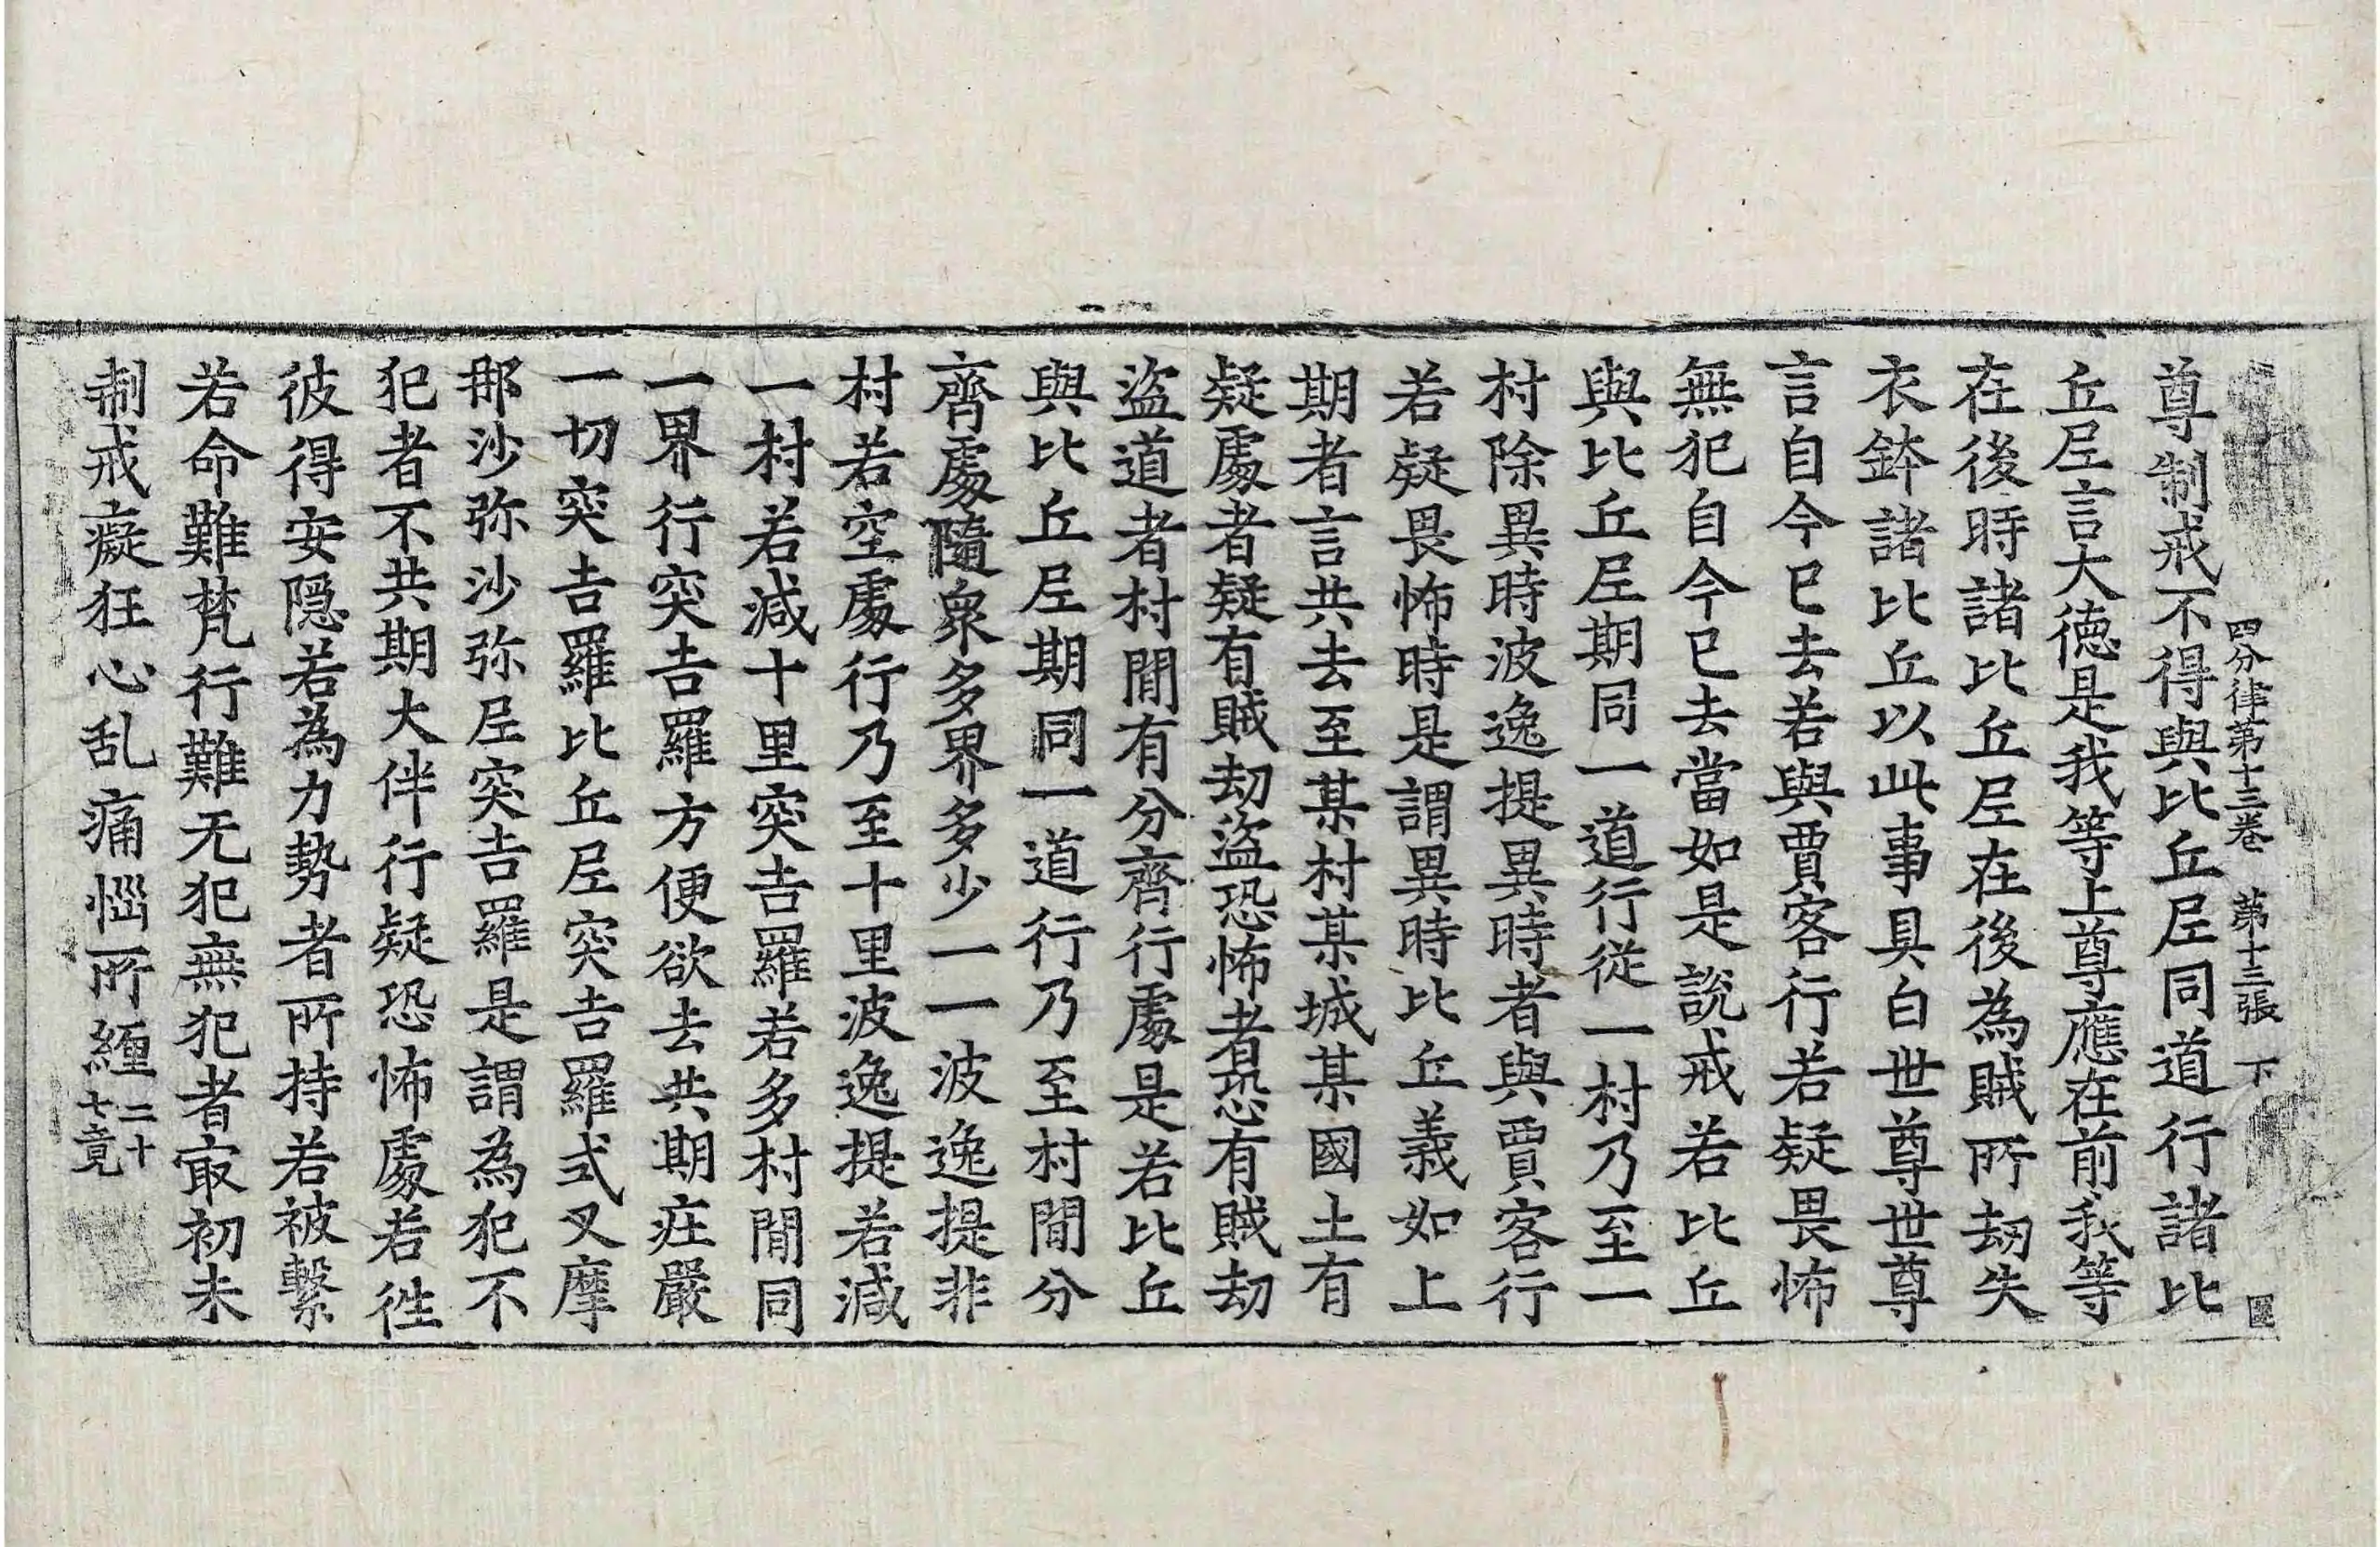 四分律第十三卷 第十三張 下
尊制戒不得與比丘尼同道行諸比
丘尼言大德是我等上尊應在前我等
在後時諸比丘尼在後為賊所劫失
衣鉢諸比丘以此事具白世尊世尊
言自今已去若與賈客行若疑畏怖
無犯自今已去當如是說戒若比丘
與比丘尼期同一道行從一村乃至一
村除異時波逸提異時者與賈客行
若疑畏怖時是謂異時比丘義如上
期者言共去至某村某城某國土有
疑處者疑有賊劫盜恐怖者恐有賊劫
盜道者村間有分齊行處是若比丘
與比丘尼期同一道行乃至村間分
齊處隨衆多界多少一一波逸提非
村若空處行乃至十里波逸提若減
一村若減十里突吉羅若多村間同
一界行突吉羅方便欲去共期庄嚴
一切突吉羅比丘尼突吉羅式叉摩
那沙弥沙弥尼突吉羅是謂為犯不
犯者不共期大伴行疑恐怖處若徃
彼得安隱若為力勢者所持若被繫
若命難梵行難无犯無犯者㝡初未
制戒癡狂心乱痛惱所纏二十七竟